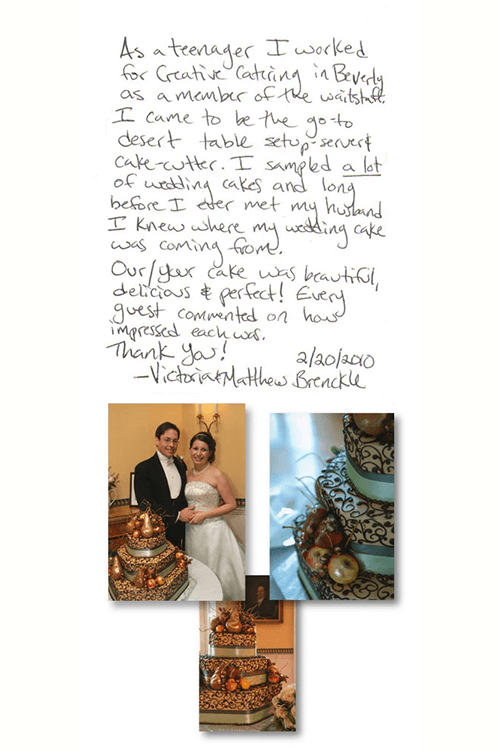 As a teenager I worked
for Creative Catering in Beverly
as a member of the waitstaff.
I came to be the go-to
desert table setup-server &
cake-cutter. I sampled a lot
of wedding cakes and long
before I ever met my husband
I knew where my wedding cake
was coming from.
Our/your cake was beautiful,
delicious & perfect! Every
guest commented on how
impressed each was.
Thank You! 2/20/2010
-Victoria & Matthew Brenckle